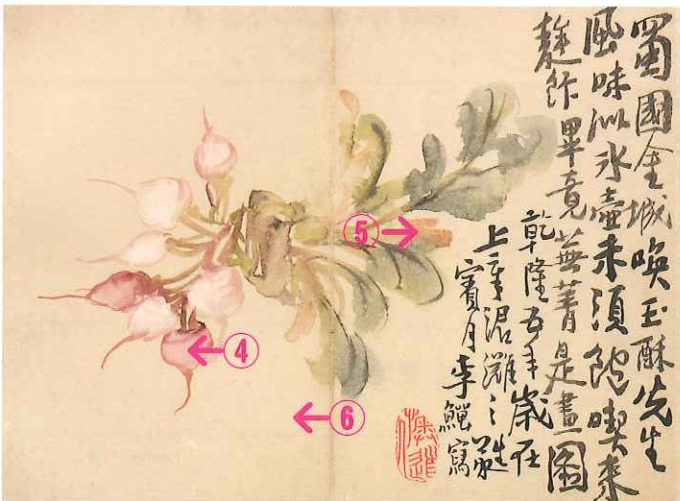 蜀國金城喚玉酥先生
風味似冰壺未須飽喫来
畢竟蕪菁是畫圖
乾隆五年歲在
上章涒灘之蕤
賓月李鱓寫
⑤
④
⑥